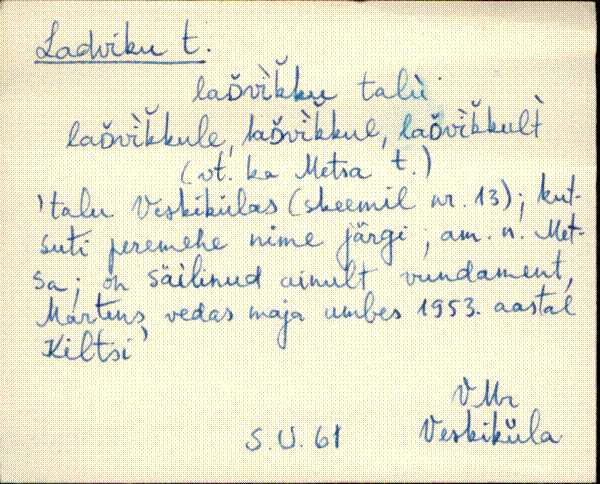 Ladviku t.
laδvìk̆ku talù
laδvìk̆kule, laδvìk̆kul, laδvìk̆kulт̀
(vt. ka Metsa t.)
'talu Veskikülas (skeemil nr. 13); kut-
suti peremehe nime järgi, am. n. Met-
sa; on säilinud ainult vundament,
Martens vedas maja umbes 1953. aastal
Kiltsi'
VMr
S.U. 61 Veskiküla